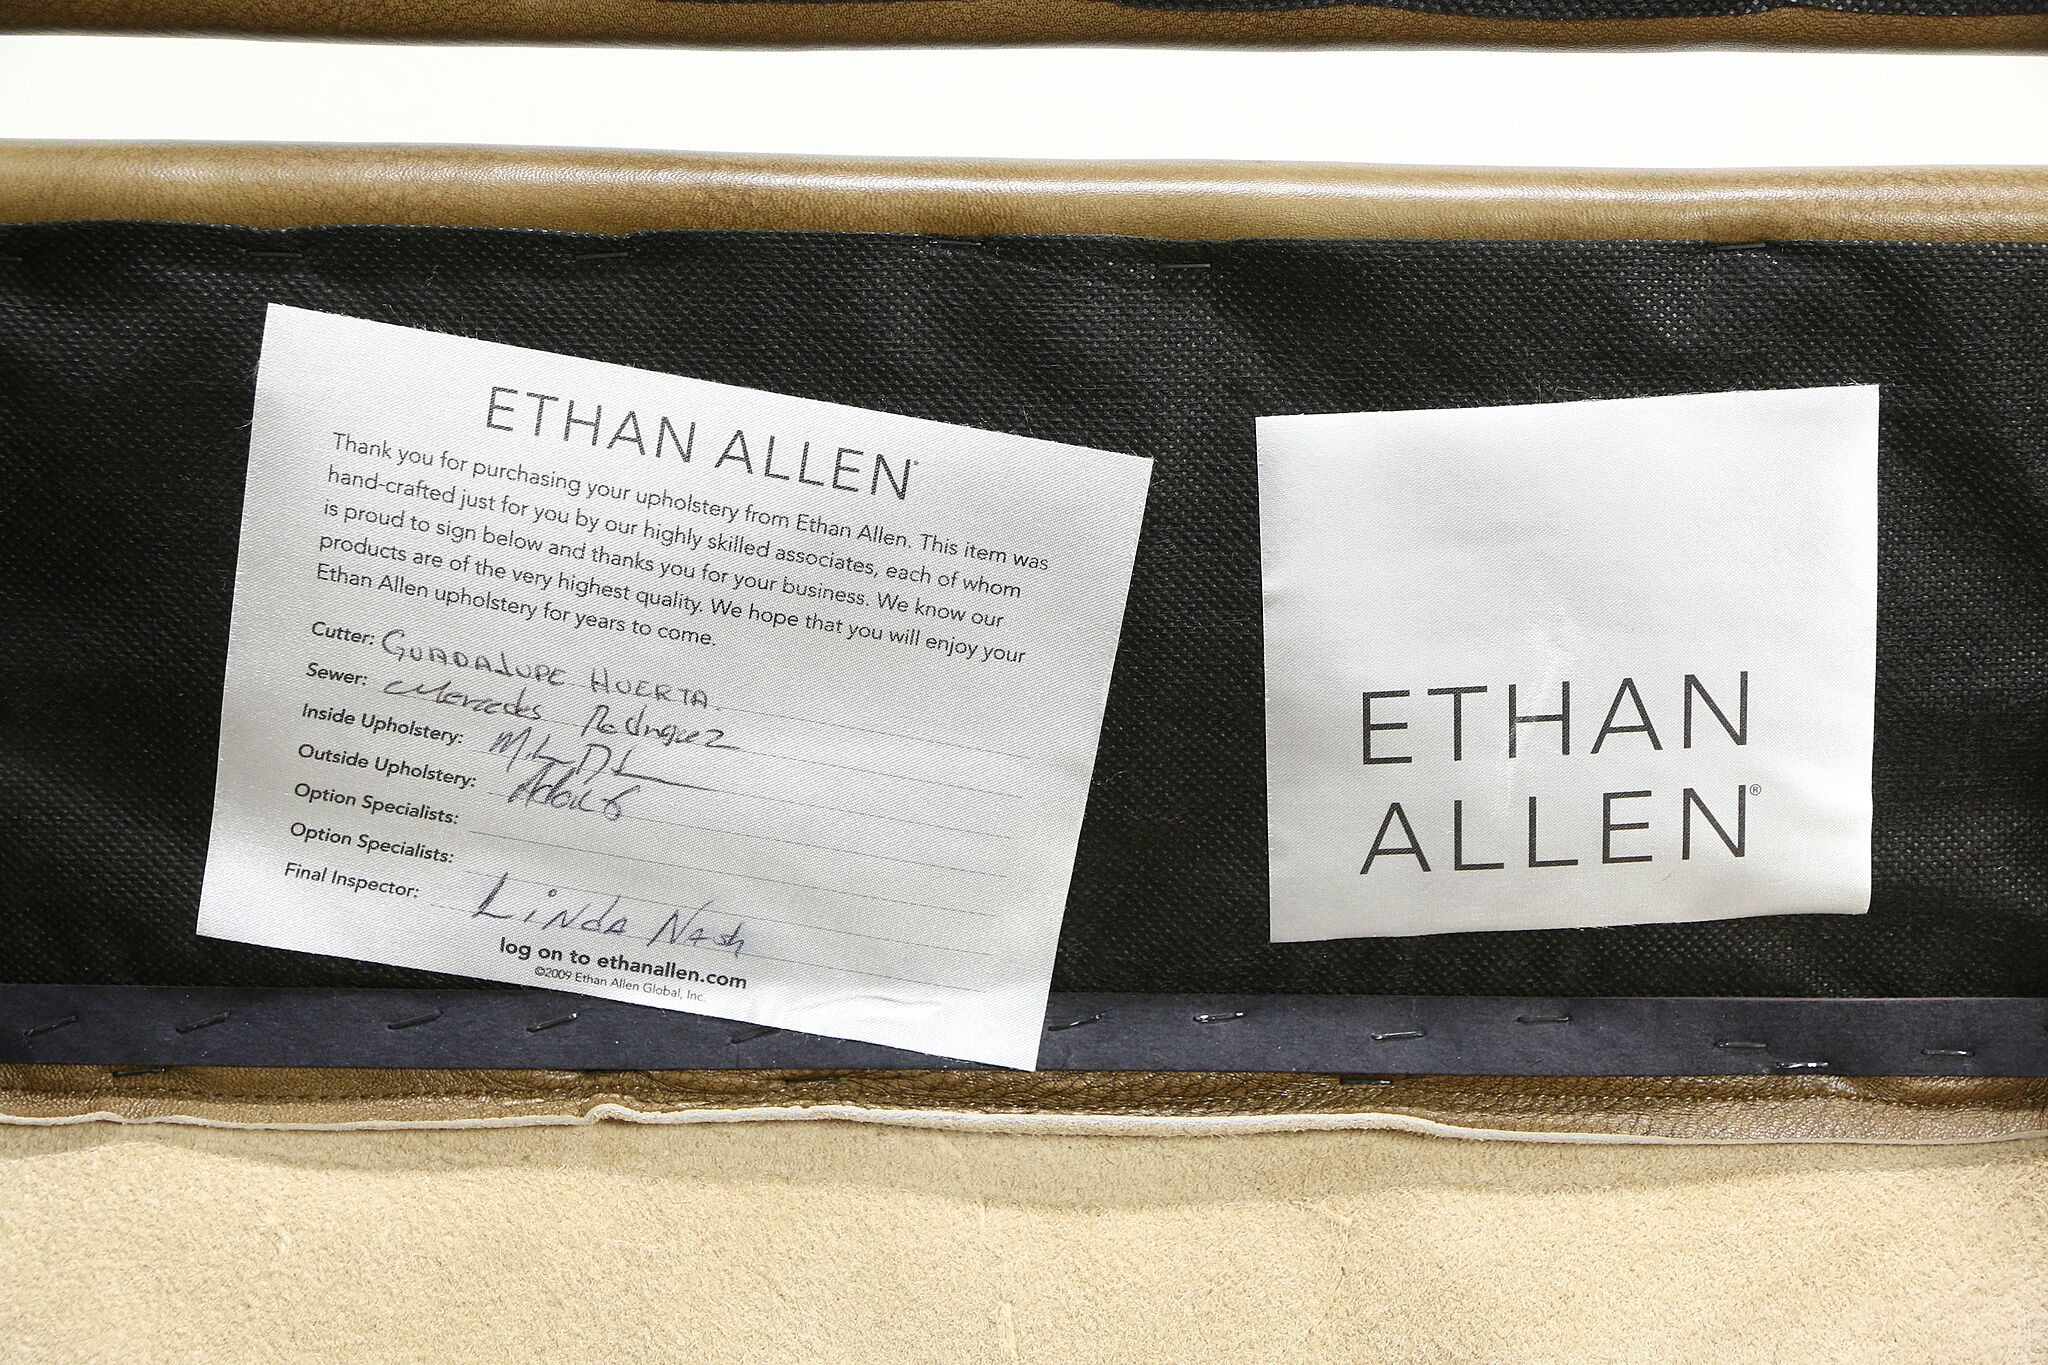 ETHAN ALLEN
Thank you for purchasing your upholstery from Ethan Allen. This item was
hand-crafted just for you by our highly skilled associates, each of whom
is proud to sign below and thanks you for your business. We know our
products are of the very highest quality. We hope that you will enjoy your
Ethan Allen upholstery for years to come.
Cutter: GUADALUPE HUERTA.
Sewer: Mercedes Rodriguez
Inside Upholstery:
Outside Upholstery:
Option Specialists:
Option Specialists:
Final Inspector: Linda Nash
log on to ethanallen.com
©2009 Ethan Allen Global, Inc.
ETHAN
ALLEN®